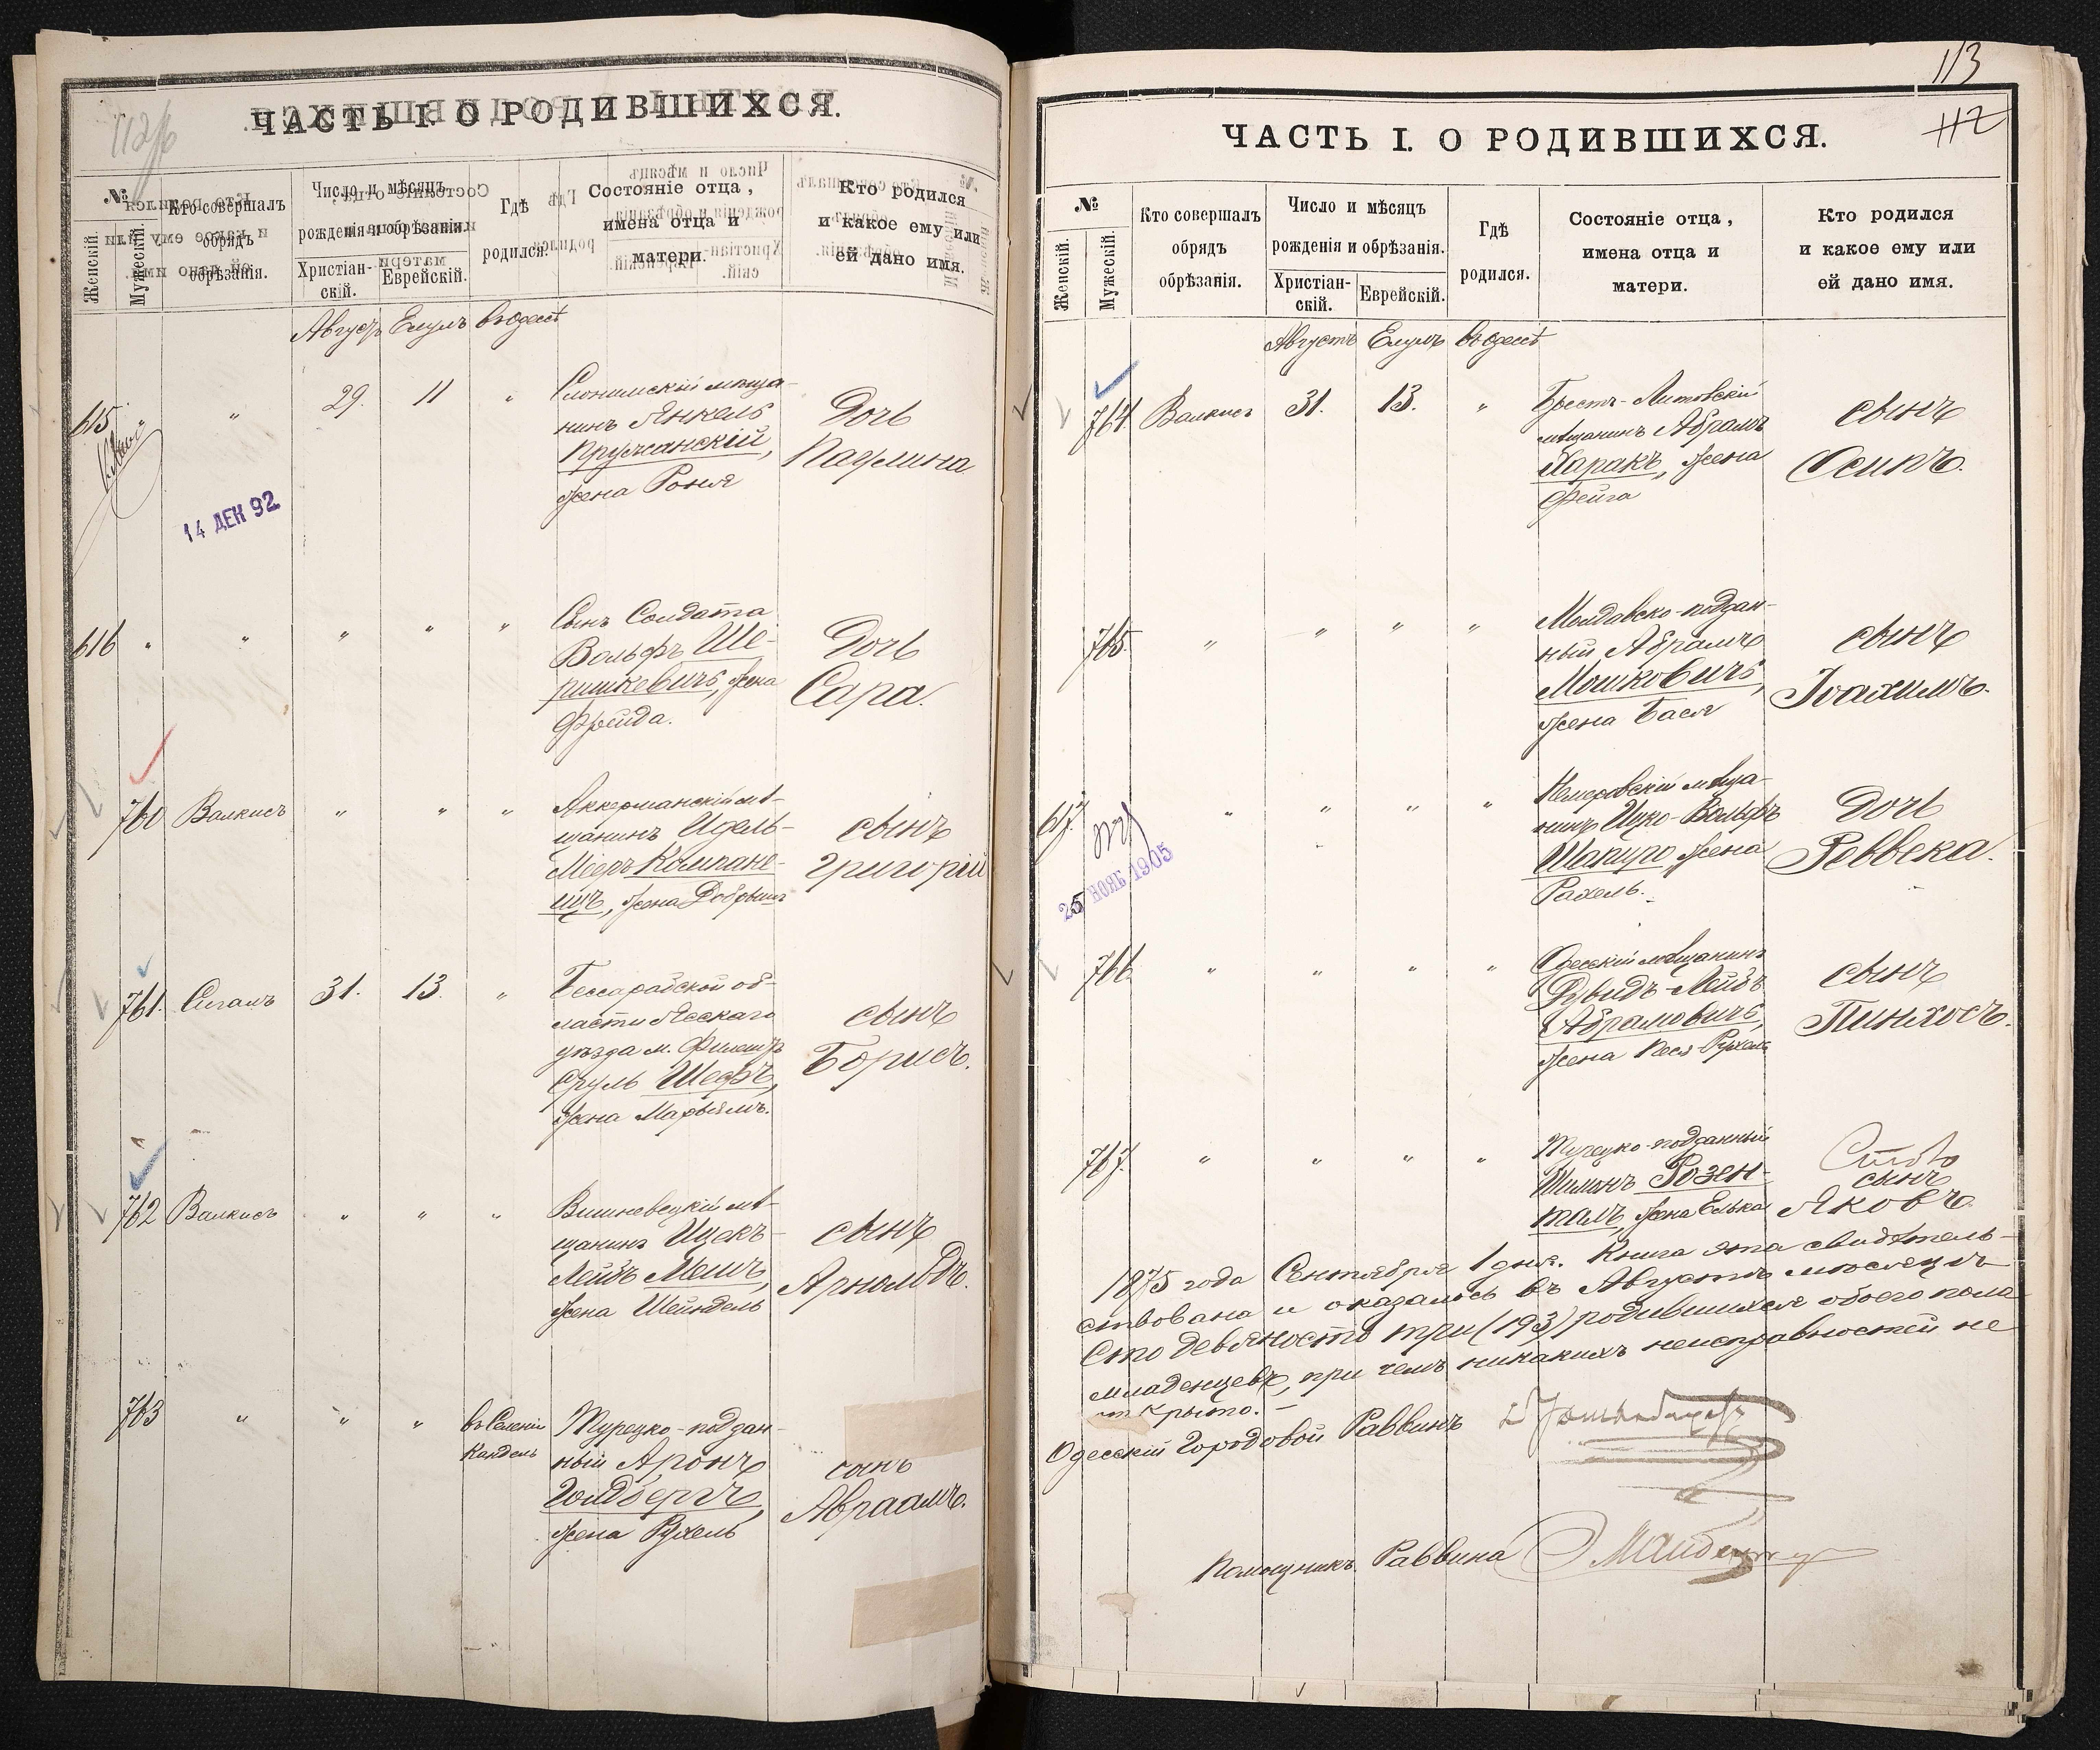 112об
ЧАСТЬ I. О РОДИВШИХСЯ.
№
Женскій.
Мужескій.
Кто совершалъ
обрядъ
обрѣзанія.
Число и мѣсяцъ
рожденія и обрѣзанія.
Христіан-
скій.
Еврейскій.
Гдѣ
родился.
Состояніе отца,
имена отца и
матери.
Кто родился
и какое ему или
ей дано имя.
Августъ Елулъ въ Одессѣ
615 " 29. 11 "
Слонимскій мѣща-
нинъ Янкель
Пружанскій,
жена Роня
Дочь
Паулина
14 ДЕК 92
616 " " " " "
Сынъ Солдата
Вольфъ Ше-
ришкевичъ, жена
Фрейда.
Дочь
Сара.
760 Валкисъ " " "
Аккерманскій мѣ-
щанинъ Идель-
Мееръ Компане-
ицъ, жена Добрышъ
сынъ
Григорій
761. Сигалъ 31. 13. "
Бессарабской об-
ласти Ясскаго
уѣзда м. Фалешты
Сруль Шефъ,
жена Марьямъ.
сынъ
Борисъ.
762 Валкисъ " " "
Вишневецкій мѣ-
щанинъ Ицекъ-
Лейбъ Мешъ,
жена Шейндель
сынъ
Арнольдъ.
763 " " "
въ Селеніи
Кандель
Турецко-поддан-
ный Аронъ
Голдбергъ,
жена Рухель
сынъ
Авраамъ.
113
112
ЧАСТЬ I. О РОДИВШИХСЯ.
№
Женскій.
Мужескій.
Кто совершалъ
обрядъ
обрѣзанія.
Число и мѣсяцъ
рожденія и обрѣзанія.
Христіан-
скій.
Еврейскій.
Гдѣ
родился.
Состояніе отца,
имена отца и
матери.
Кто родился
и какое ему или
ей дано имя.
Августъ Елулъ въ Одессѣ
764. Валкисъ 31. 13. "
Брестъ-Литовскій
мѣщанинъ Абрамъ
Харакъ, жена
Фейга
сынъ
Осипъ.
765. " " " "
Молдавско-поддан-
ный Абрамъ
Мошковичъ,
жена Бася
сынъ
Іоахимъ.
617. " " " "
Немеровскій мѣща-
нинъ Ицко-Вольфъ
Шапиро, жена
Рахель.
Дочь
Реввека.
25 НОЯБ 1905
766. " " " "
Одесскій мѣщанинъ
Дувидъ-Лейбъ
Абрамовичъ,
жена Песя-Рухель
сынъ
Пинхосъ.
767. " " " "
Турецко-подданный
Шилимъ Розен-
талъ, жена Елька
сынъ
Яковъ.
1875 года Сентября 1 дня. Книга эта свидѣтель-
ствована и оказалось въ Августѣ мѣсяцѣ
Сто девяносто три (193) родившихся обоего пола
младенцевъ, при чемъ никакихъ неисправностей не
открыто. —
Одесскій Городовой Раввинъ
Помощникъ Раввина